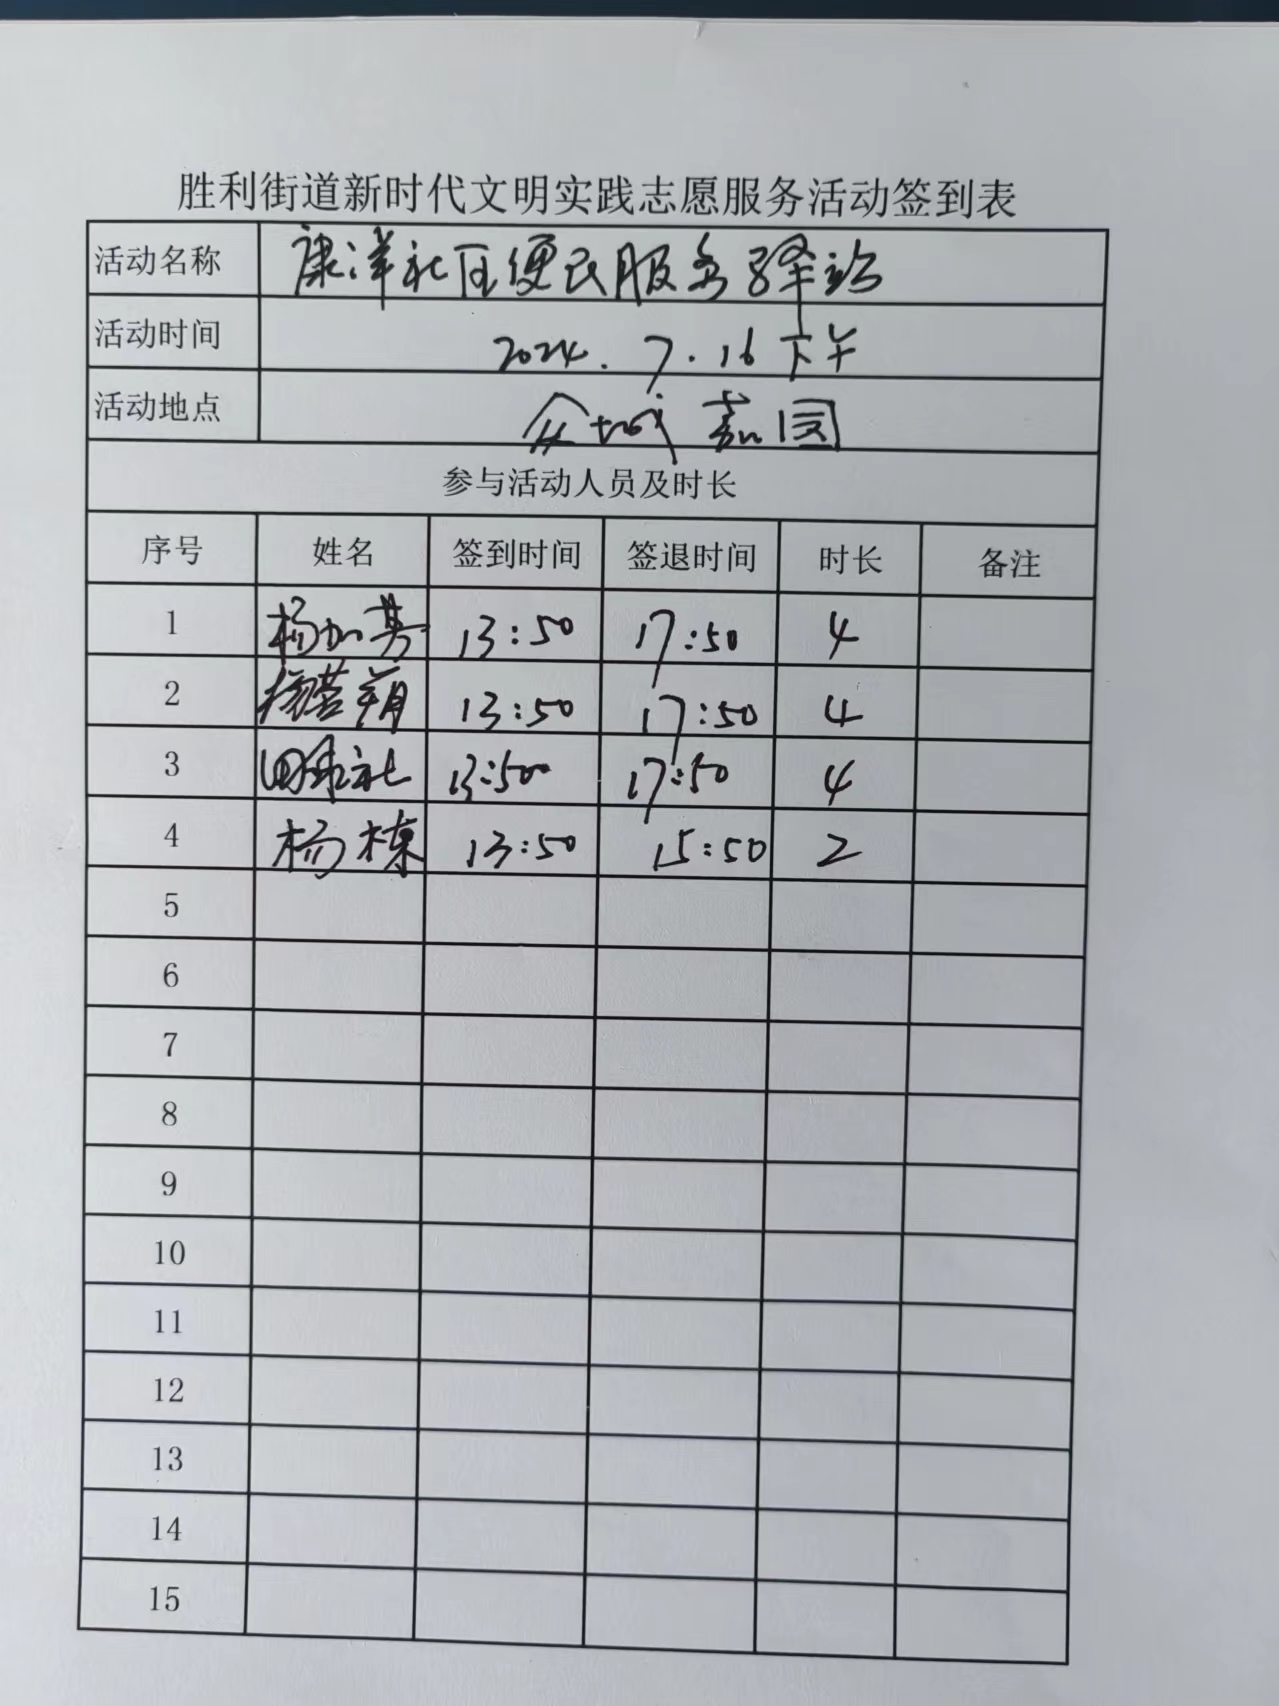 胜利街道新时代文明实践志愿服务活动签到表
活动名称 康洋社区便民服务驿站
活动时间 2024.7.16下午
活动地点 众城嘉园
参与活动人员及时长
序号 姓名 签到时间 签退时间 时长 备注
1 杨加芳 13:50 17:50 4
2 13:50 17:50 4
3 13:50 17:50 4
4 杨栋 13:50 15:50 2
5
6
7
8
9
10
11
12
13
14
15